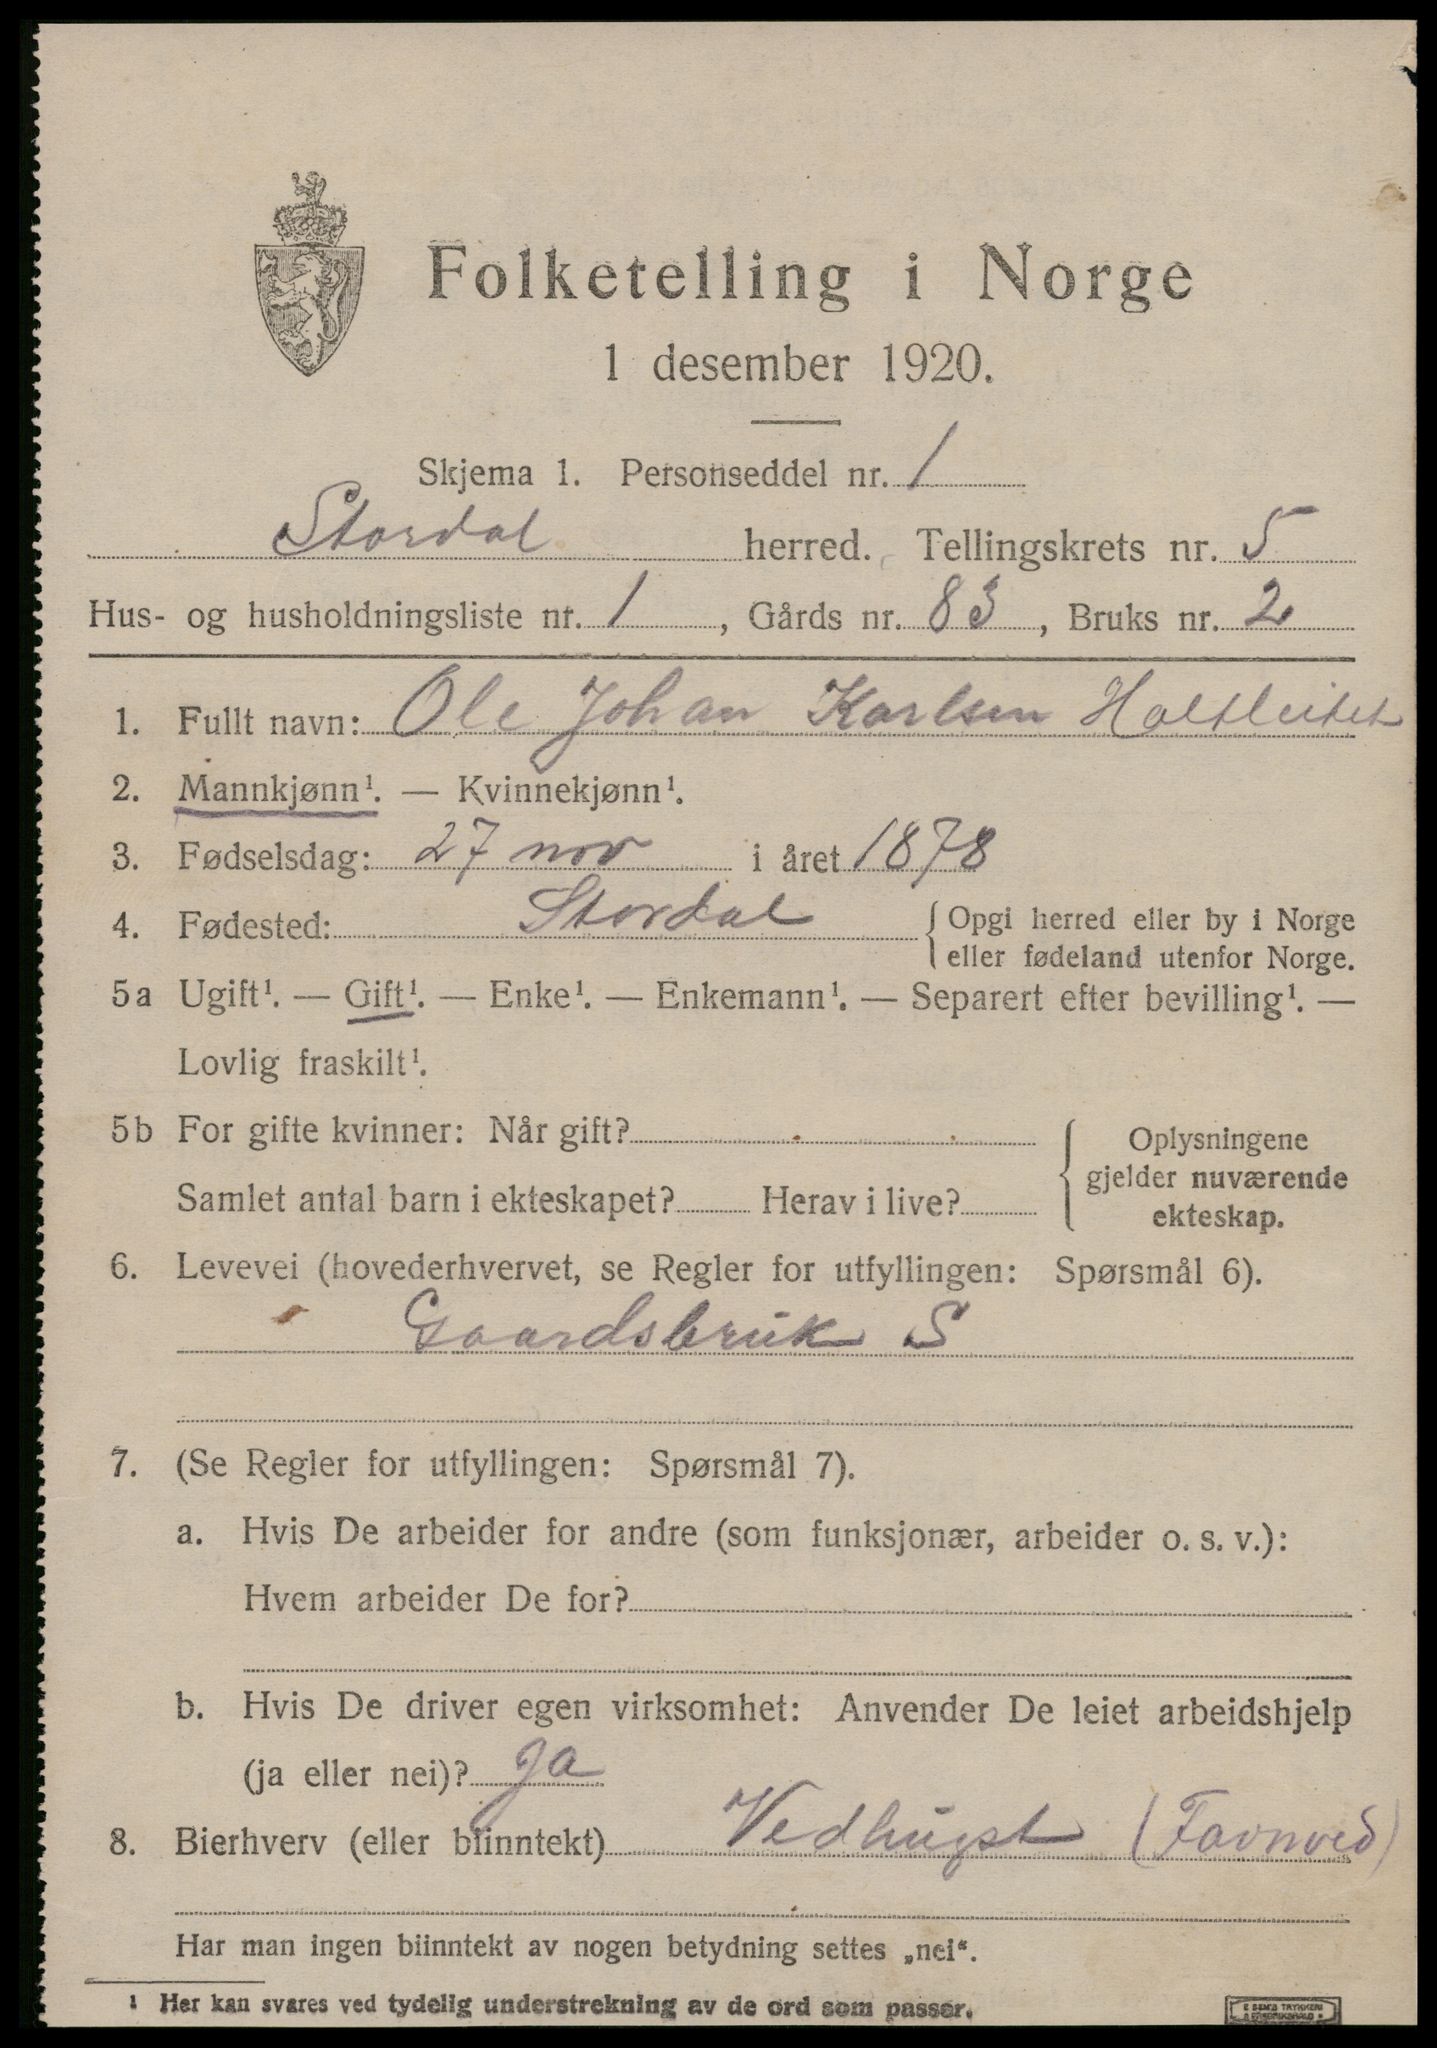 Folketelling i Norge
1 desember 1920.
Skjema 1. Personseddel nr. 1
Stordal herred. Tellingskrets nr. 5
Hus- og husholdningsliste nr. 1, Gårds nr. 83, Bruks nr. 2
1. Fullt navn: Ole Johan Karlsen
2. Mannkjønn¹. — Kvinnekjønn¹.
3. Fødselsdag: 27 nov i året 1878
4. Fødested: Stordal { Opgi herred eller by i Norge
eller fødeland utenfor Norge.
5a Ugift¹. — Gift¹. — Enke¹. — Enkemann¹. — Separert efter bevilling¹. —
Lovlig fraskilt¹.
5b For gifte kvinner: Når gift?
Samlet antal barn i ekteskapet? Herav i live?
{ Oplysningene
gjelder nuværende
ekteskap.
6. Levevei (hovederhvervet, se Regler for utfyllingen: Spørsmål 6).
Gaardsbruk S
7. (Se Regler for utfyllingen: Spørsmål 7).
a. Hvis De arbeider for andre (som funksjonær, arbeider o. s. v.):
Hvem arbeider De for?
b. Hvis De driver egen virksomhet: Anvender De leiet arbeidshjelp
(ja eller nei)? Ja
8. Bierhverv (eller biinntekt) Vedhugst (Favnved)
Har man ingen biinntekt av nogen betydning settes „nei“.
¹ Her kan svares ved tydelig understrekning av de ord som passer.